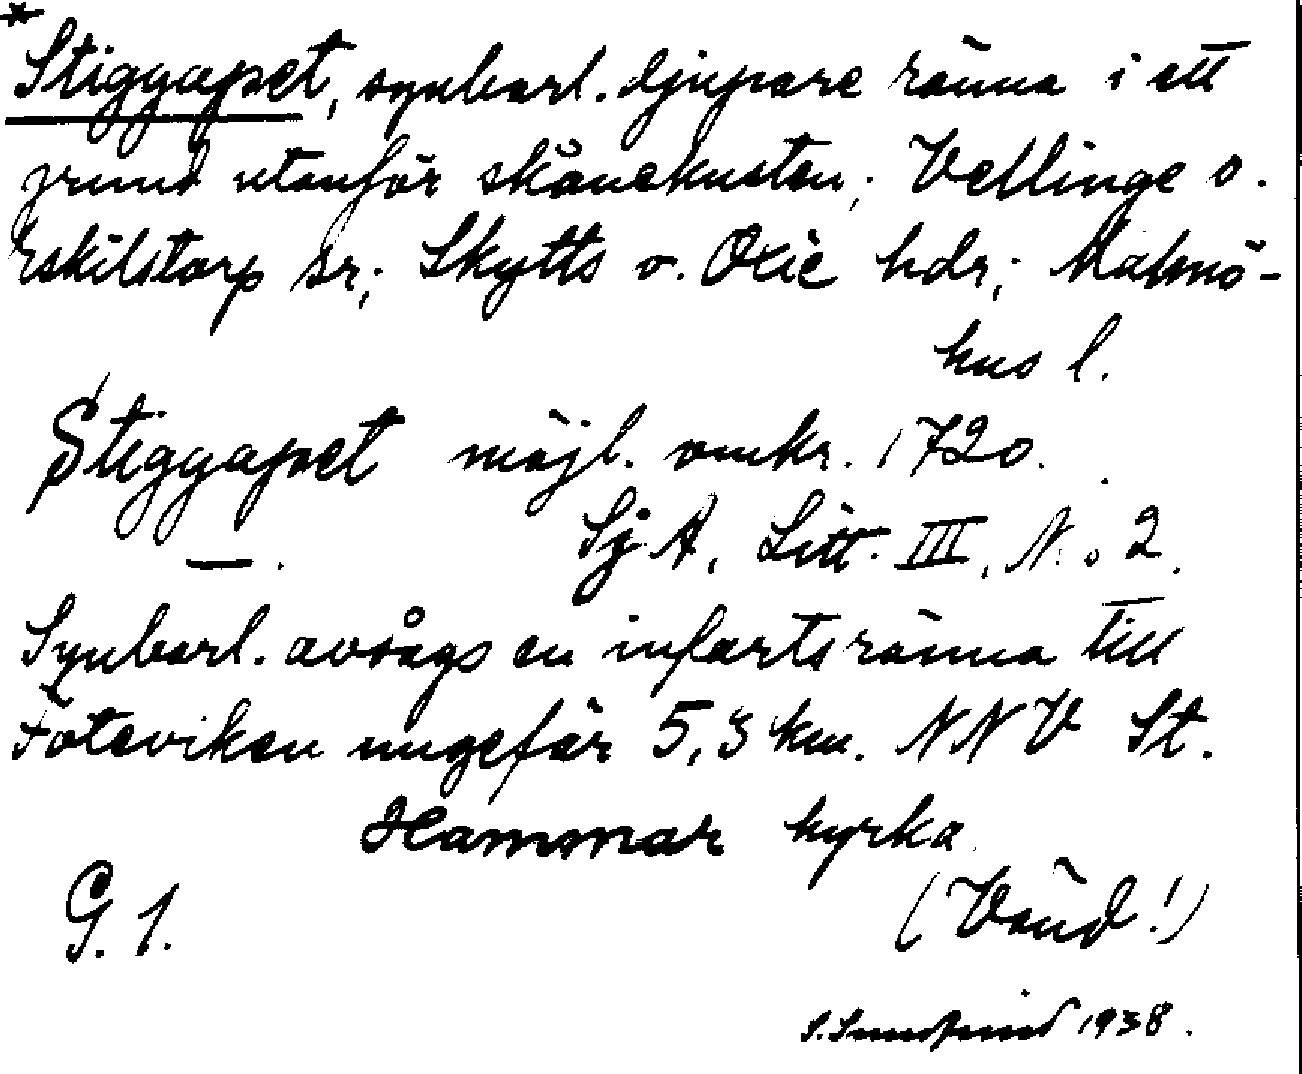 *
Stiggapet, synbarl. djupare ränna i ett
grund utanför skånekusten; Vellinge o.
Eskilstorp sr; Skytts o. Oxie hdr; Malmö-
hus l.
Stiggapet möjl. omkr. 1720.
Sj A, Litt. III, N:o 2.
Synbarl. avsågs en infartsränna till
Foteviken ungefär 5,3 km. NNV St.
Hammar kyrka.
G. 1. (Vänd!)
1938.